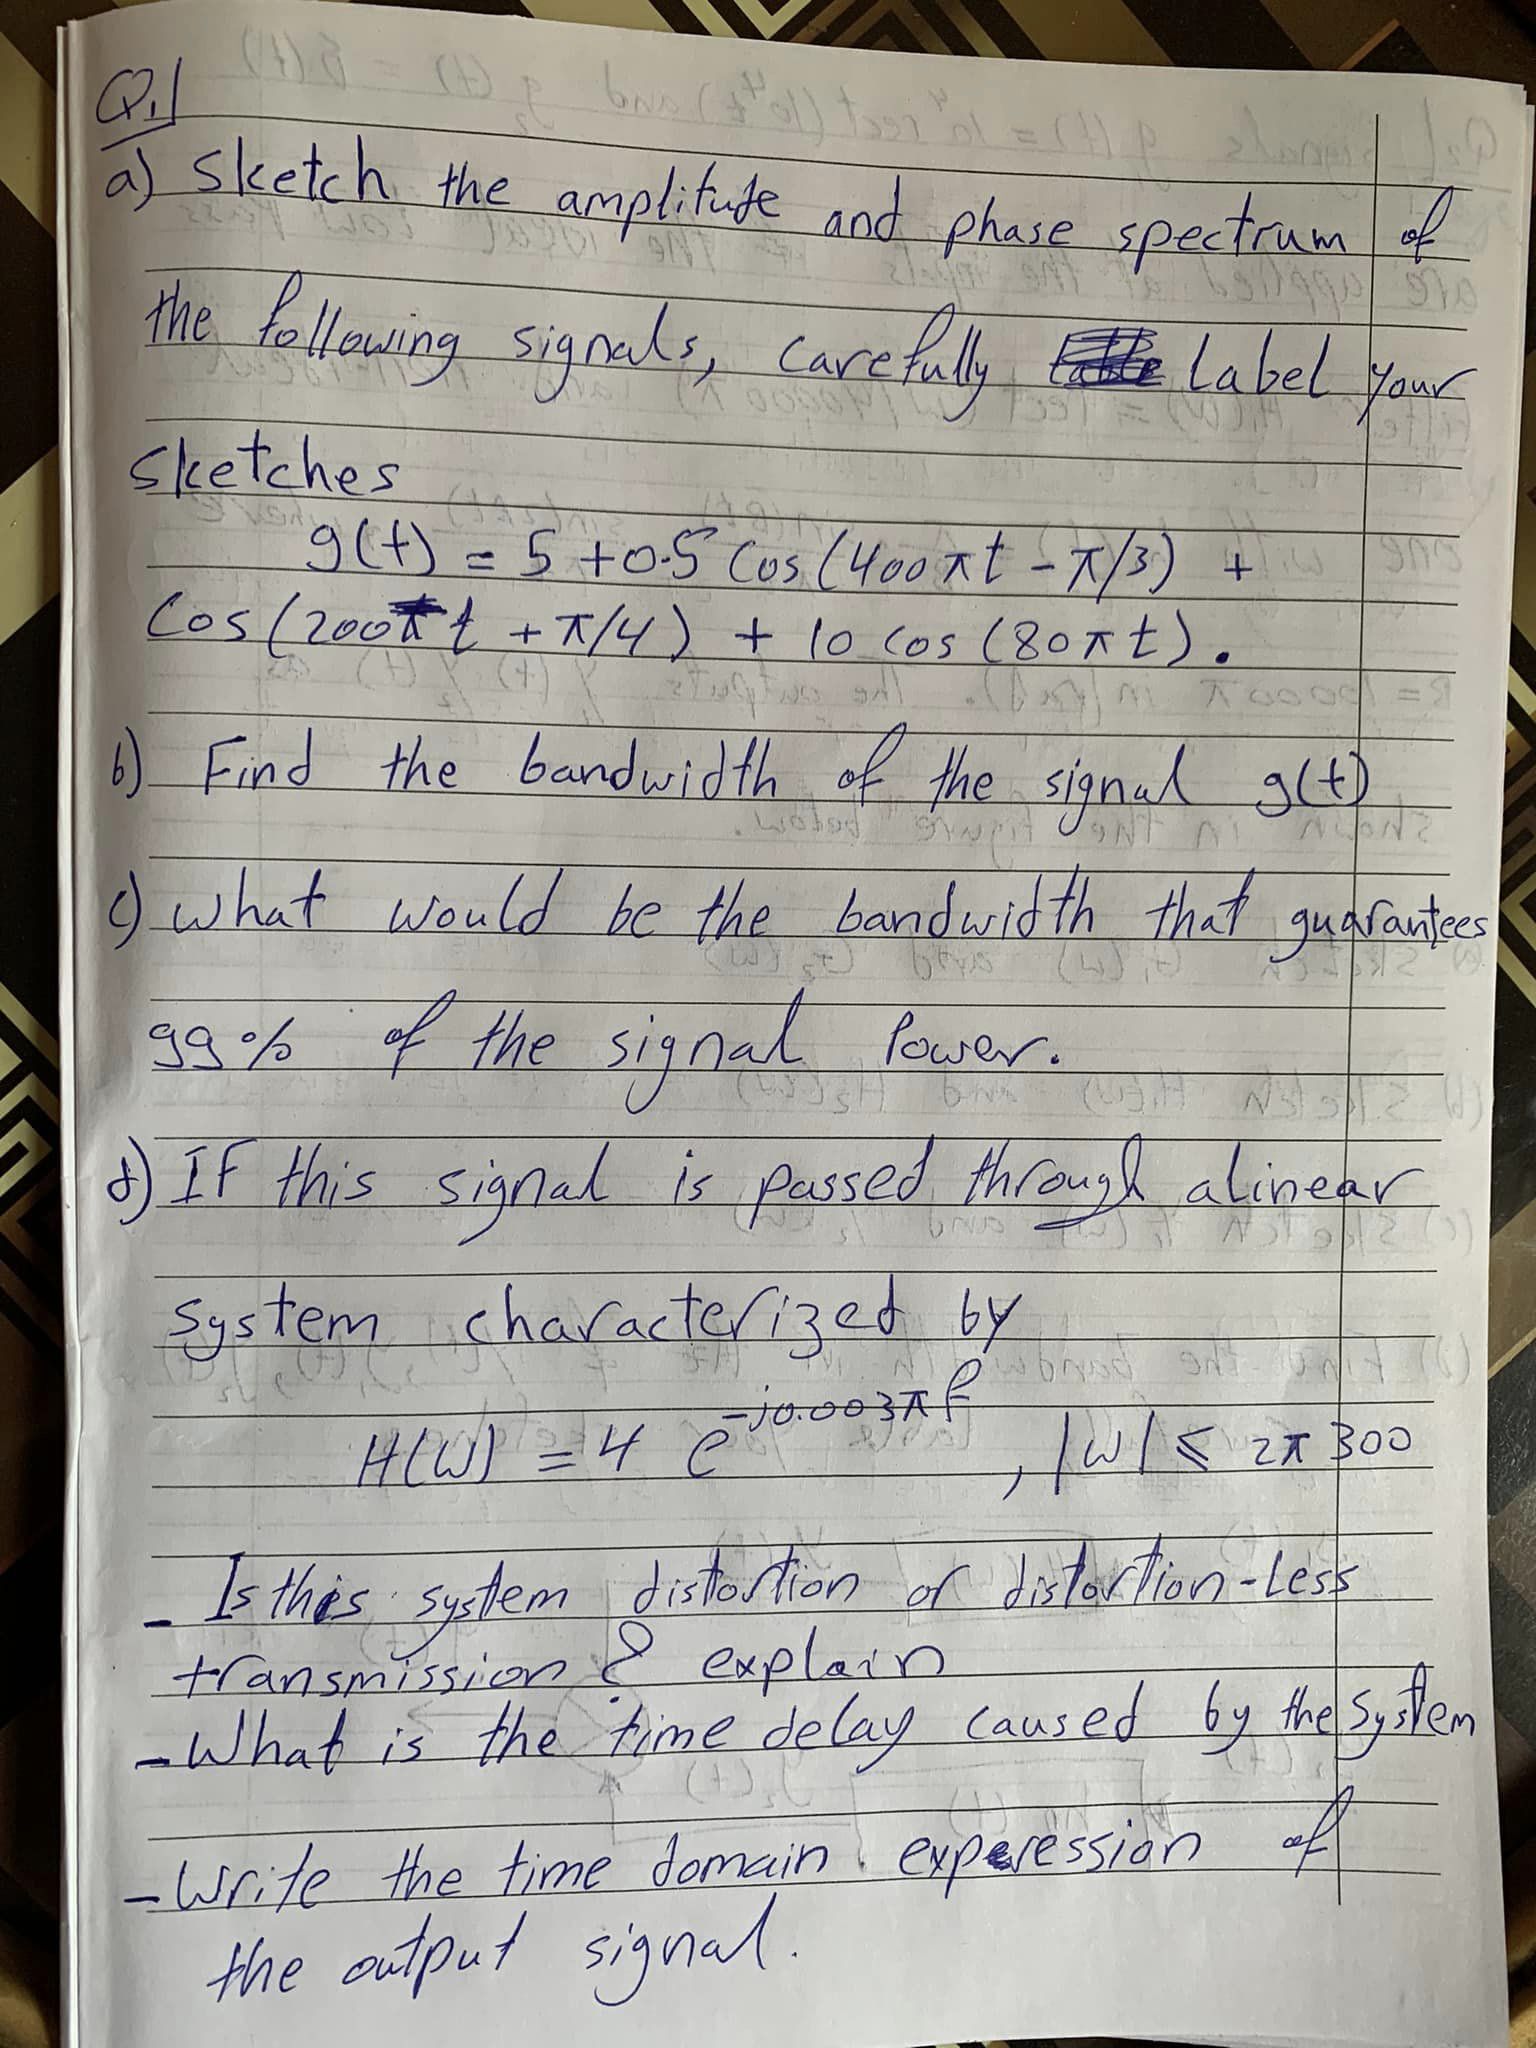 Q1
a) Sketch the amplitude and phase spectrum of
the following signals, carefully Label your
sketches
g(t) = 5 + 0.5 Cos (400πt - π/3) +
Cos (200πt + π/4) + 10 Cos (80πt).
b) Find the bandwidth of the signal g(t)
c) what would be the bandwidth that guarantees
99% of the signal Power.
d) If this signal is passed through a linear
system characterized by
H(W) = 4 e^{-j0.003πf}, |W| ≤ 2π 300
- Is this system distortion or distortion-less
transmission? explain
- What is the time delay caused by the system
- Write the time domain experession of
the output signal.